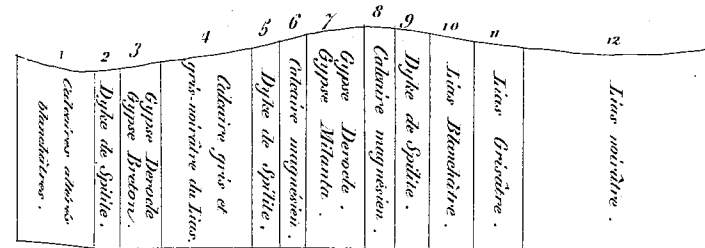 1 2 3 4 5 6 7 8 9 10 11 12
Calcaires altérés
blanchâtres.
Dyke de Spilite.
Gypse Derocle
Gypse Breton.
Calcaire gris et
gris-noirâtre du Lias.
Dyke de Spilite.
Calcaire magnésien.
Gypse Derocle.
Gypse Milanta.
Calcaire magnésien.
Dyke de Spilite.
Lias Blanchâtre.
Lias Grisâtre.
Lias noirâtre.